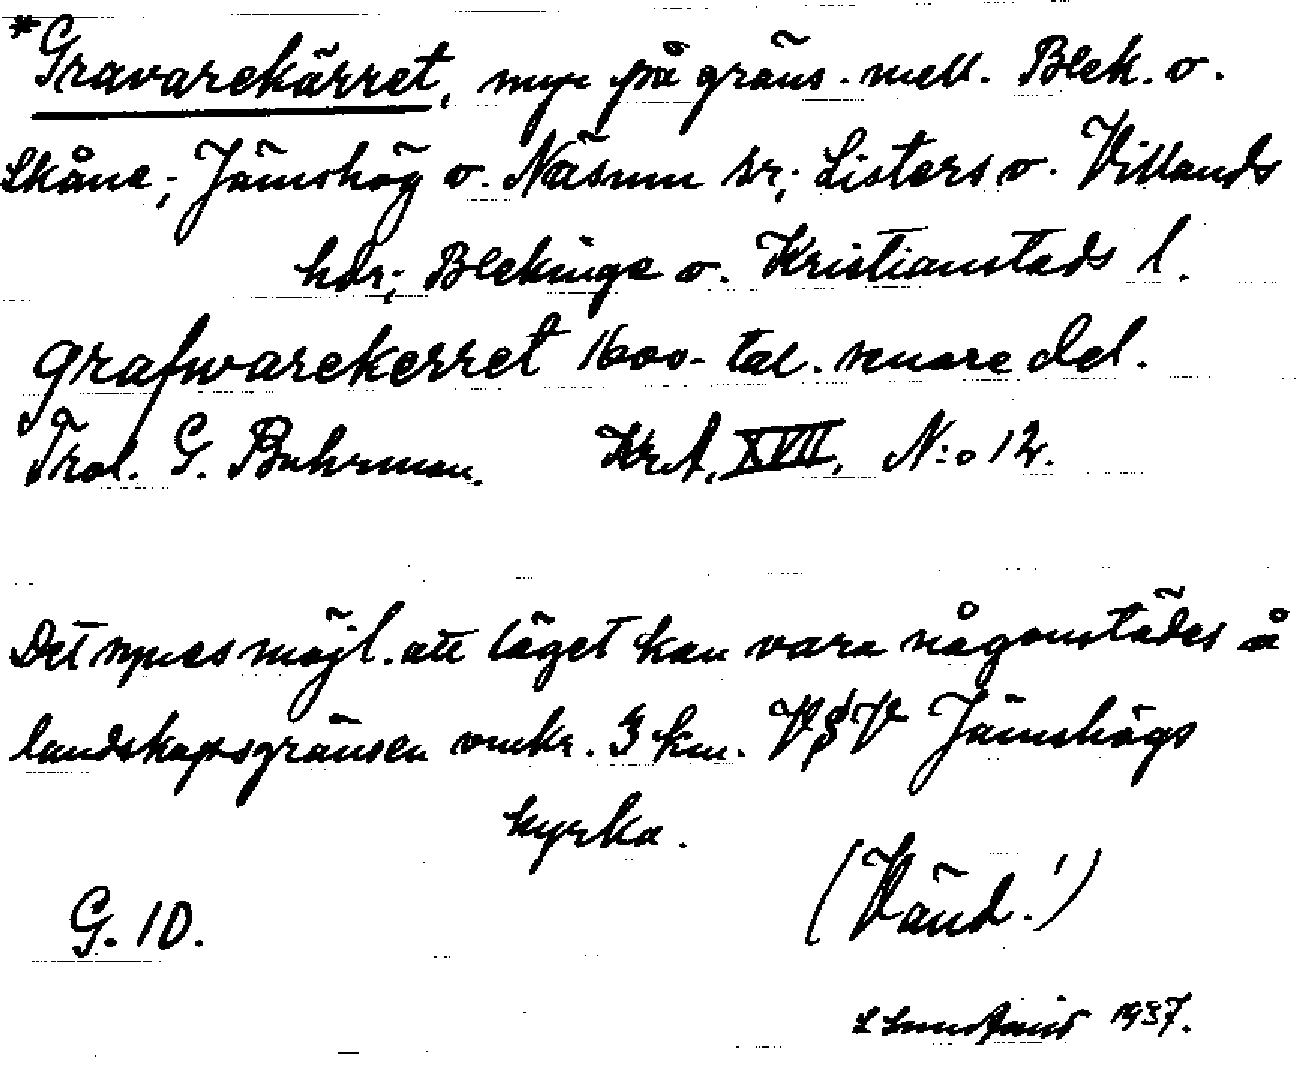 *Gravarekärret, myr på gräns. mell. Blek. o.
Skåne; Jämshög o. Näsum sr; Listers o. Villands
hdr; Blekinge o. Kristianstads l.
grafwarekerret 1600-tal. senare del.
Trol. G. Buhrman. Krt. XVII, N:o 12.
Det synes möjl. att läget kan vara någonstädes å
landskapsgränsen omkr. 3 km. VSV Jämshögs
kyrka.
(Vänd!)
G. 10.
1937.